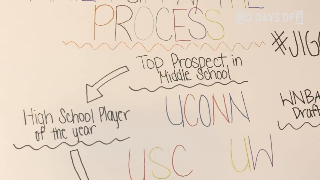 PROCESS
DAYS OFF
#JIG
Top Prospect in
Middle School
High School Player
of the year
UCONN
WNBA
Draft
USC
UW